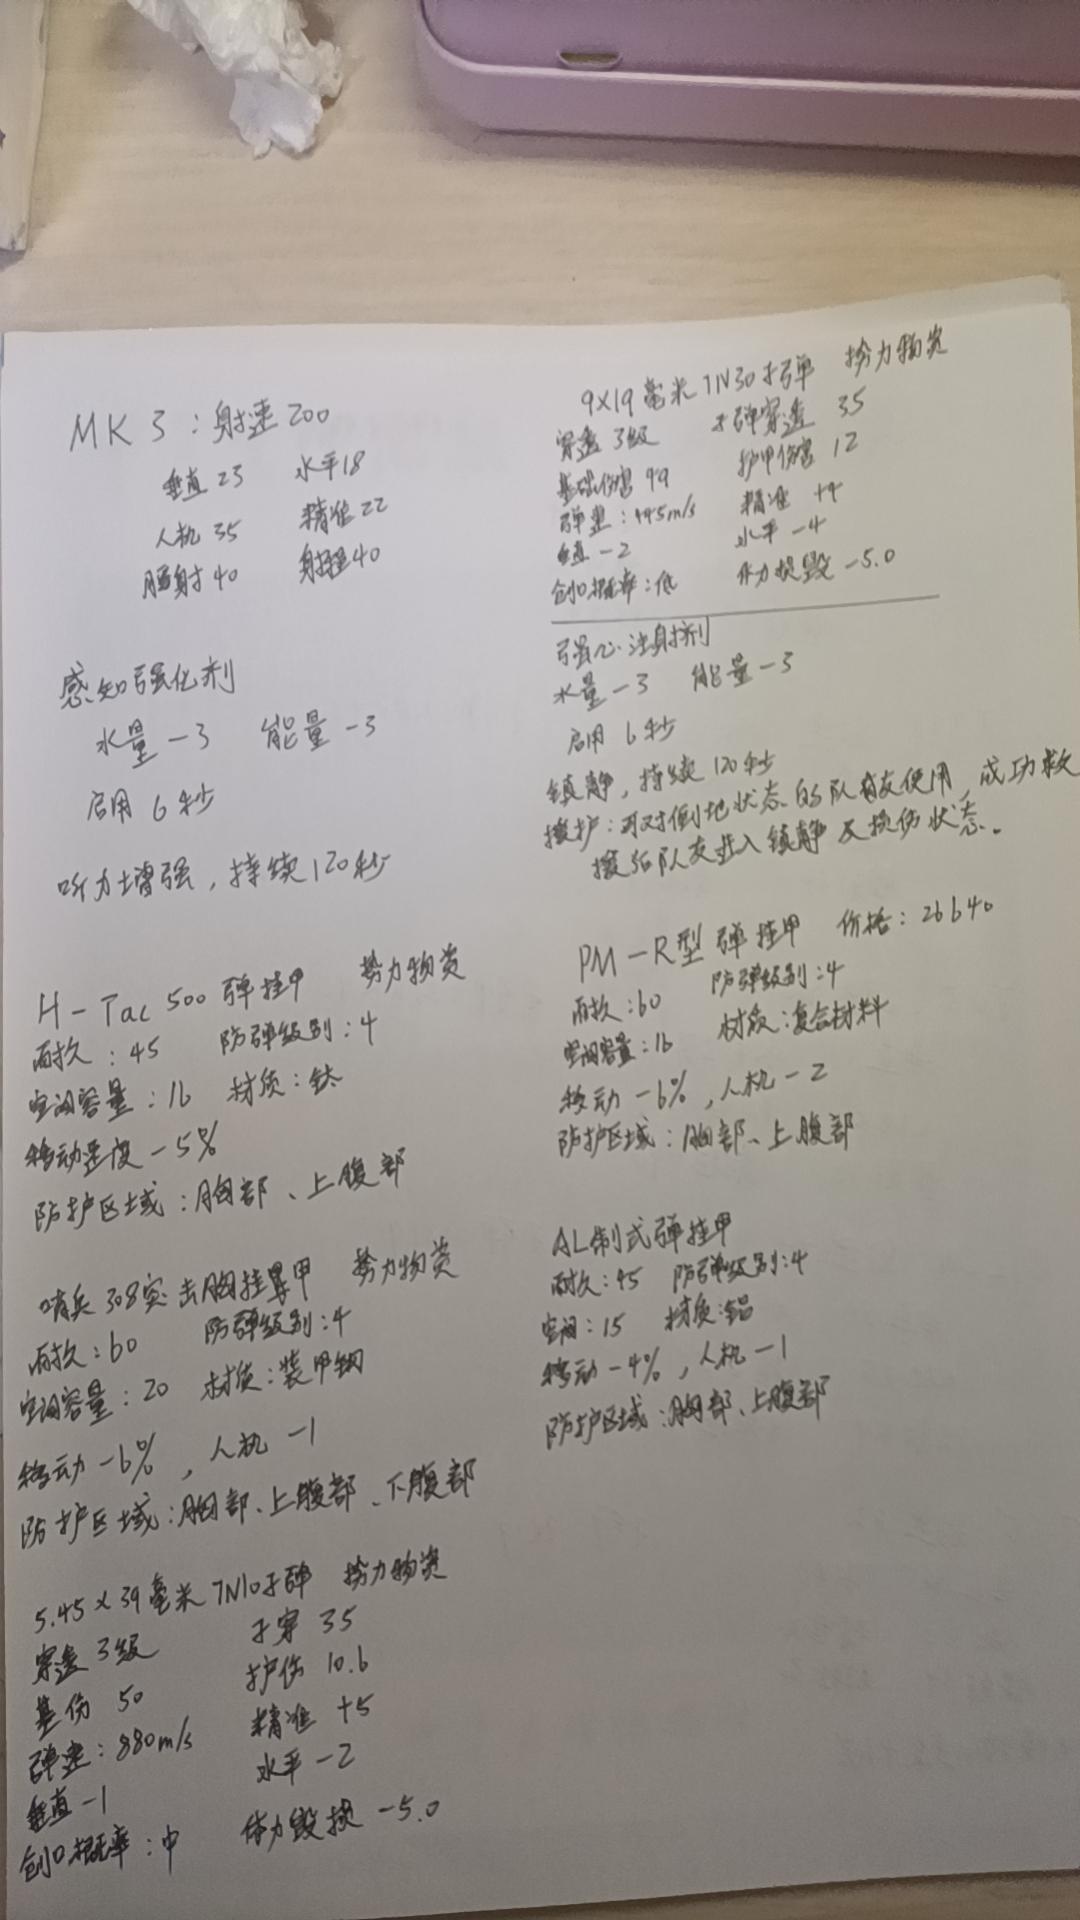 MK 3：射速 200
垂直 23 水平 18
人机 35 精准 22
腰射 40 射程 40
感知强化剂
水量 -3 能量 -3
启用 6 秒
听力增强，持续 120 秒
H-Tac 500 弹挂甲 势力物资
耐久：45 防弹级别：4
空间容量：16 材质：钛
移动速度 -5%
防护区域：胸部、上腹部
哨兵 308 突击胸挂甲 势力物资
耐久：60 防弹级别：4
空间容量：20 材质：装甲钢
移动 -6%，人机 -1
防护区域：胸部、上腹部、下腹部
5.45×39 毫米 7N10 子弹 势力物资
穿透 3级 子穿 35
基伤 50 护伤 10.6
弹速：880m/s 精准 +5
垂直 -1 水平 -2
创口概率：中 体力毁损 -5.0
9×19 毫米 7N30 子弹 势力物资
穿透 3级 子弹穿透 35
基础伤害 49 护甲伤害 12
弹速：445m/s 精准 +4
垂直 -2 水平 -4
创口概率：低 体力损毁 -5.0
强心注射剂
水量 -3 能量 -3
启用 6 秒
镇静，持续 120 秒
援护：可对倒地状态的队友使用，成功救
援后队友进入镇静及损伤状态。
PM-R型 弹挂甲 价格：26640
耐久：60 防弹级别：4
空间容量：16 材质：复合材料
移动 -6%，人机 -2
防护区域：胸部、上腹部
AL制式弹挂甲
耐久：45 防弹级别：4
空间：15 材质：铝
移动 -4%，人机 -1
防护区域：胸部、上腹部